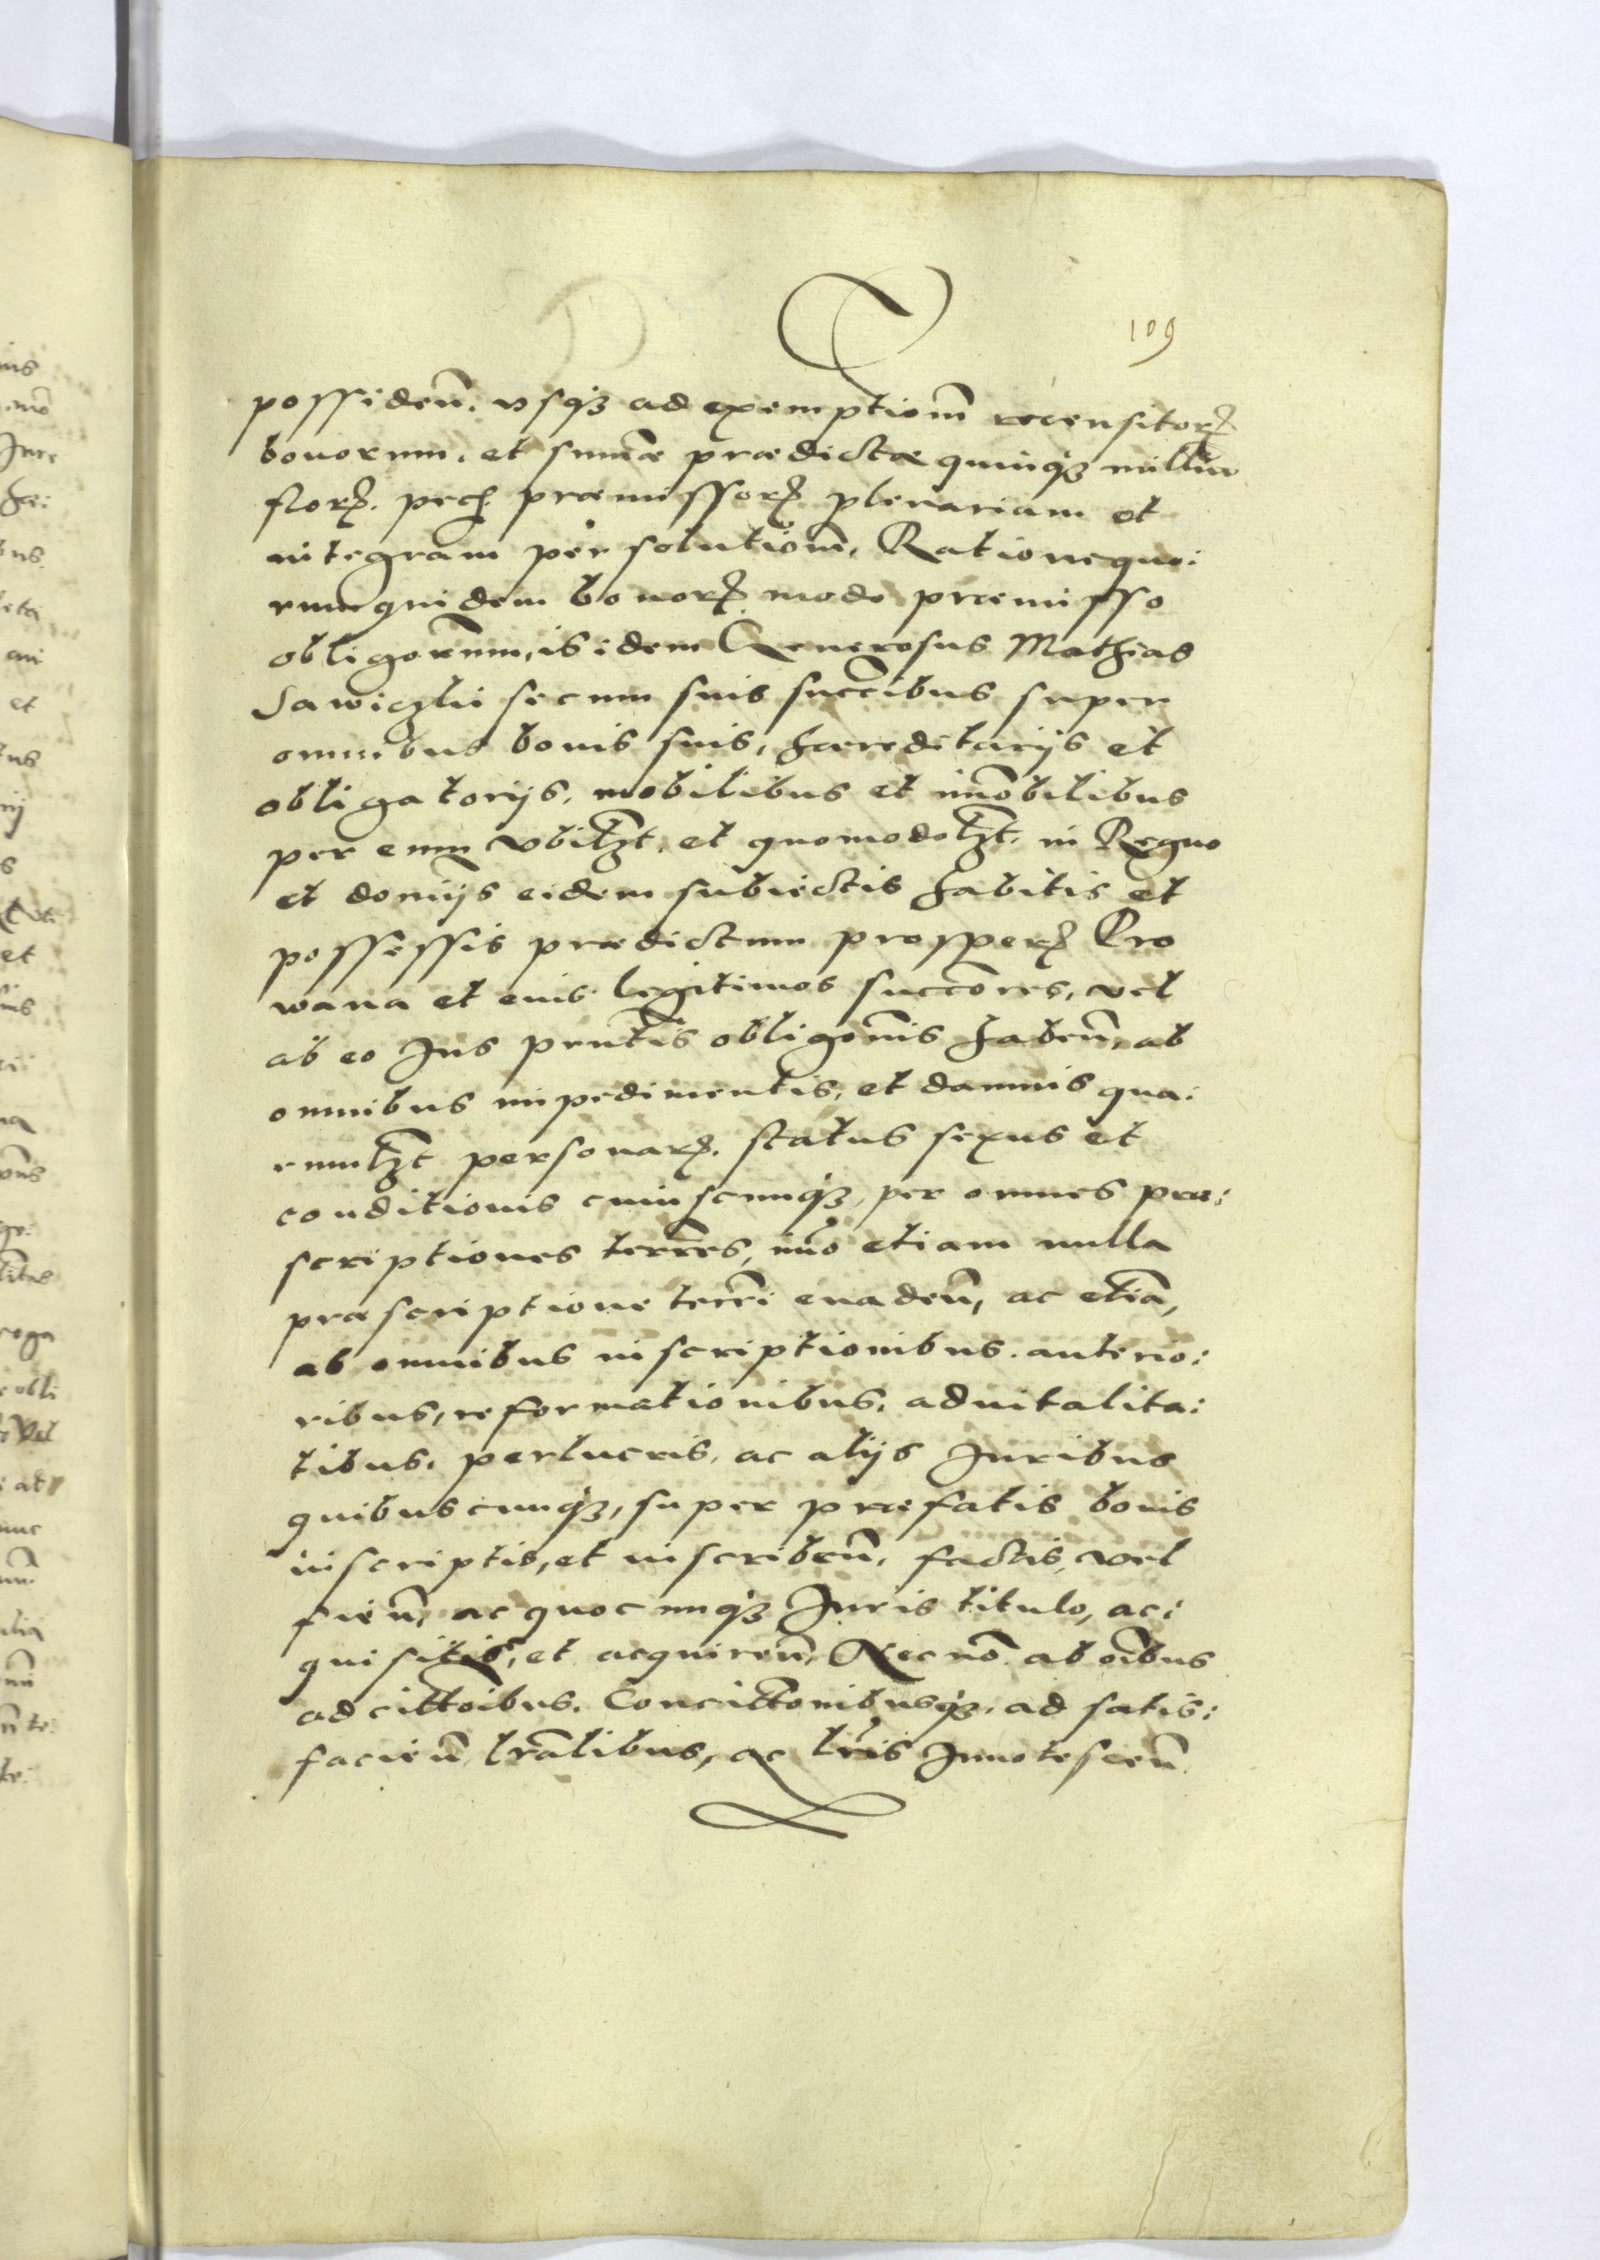 109
possideñ. vsqȝ ad exemptioñ recensitorꝝ
bonorum, et sum̃æ prædictæ quinqȝ millia
florꝝ. pecꝭ. præmissorꝝ plenariam et
integram persolutioñ, Rationequo:
rumquidem bonorꝝ modo præmisso
obligoꝝnum, is idem Generosus Mathias
Sawiczki secum suis succ̃ribus super
omnibus bonis suis, hæreditarijs et
obligatorijs, mobilibus et im̃obilibus
per eum vbilȝt, et quomodolȝt, in Regno
et domijs eidem subiectis habitis et
possessis prædictum prosperꝝ Pro
wana et euis legitimos succ̃ores, vel
ab eo Jus prñtis obligonis habeñ, ab
omnibus impedimentis, et damnis qua:
rumlȝt personarꝝ. status sexus et
conditionis cuiuscunqȝ, per omnes præ:
scriptiones terr̃es, im̃o etiam nulla
præscriptione terr̃i euadeñ, ac etiã,
ab omnibus inscriptionibus anterio:
ribus, reformationibus, aduitalita:
tibus, perlucris, ac alijs Juribus
quibuscunqȝ, super præfatis bonis
inscriptis, et inscribeñ, factis, vel
fieñ, ac quocunqȝ Juris titulo, ac:
quisitis, et acquireñ, Necnõ ab oĩbus
adcitt̃oibus, Concitt̃onibusqȝ, ad satis:
facieñ lr̃alibus, ac lr̃is Jnnotesceñ